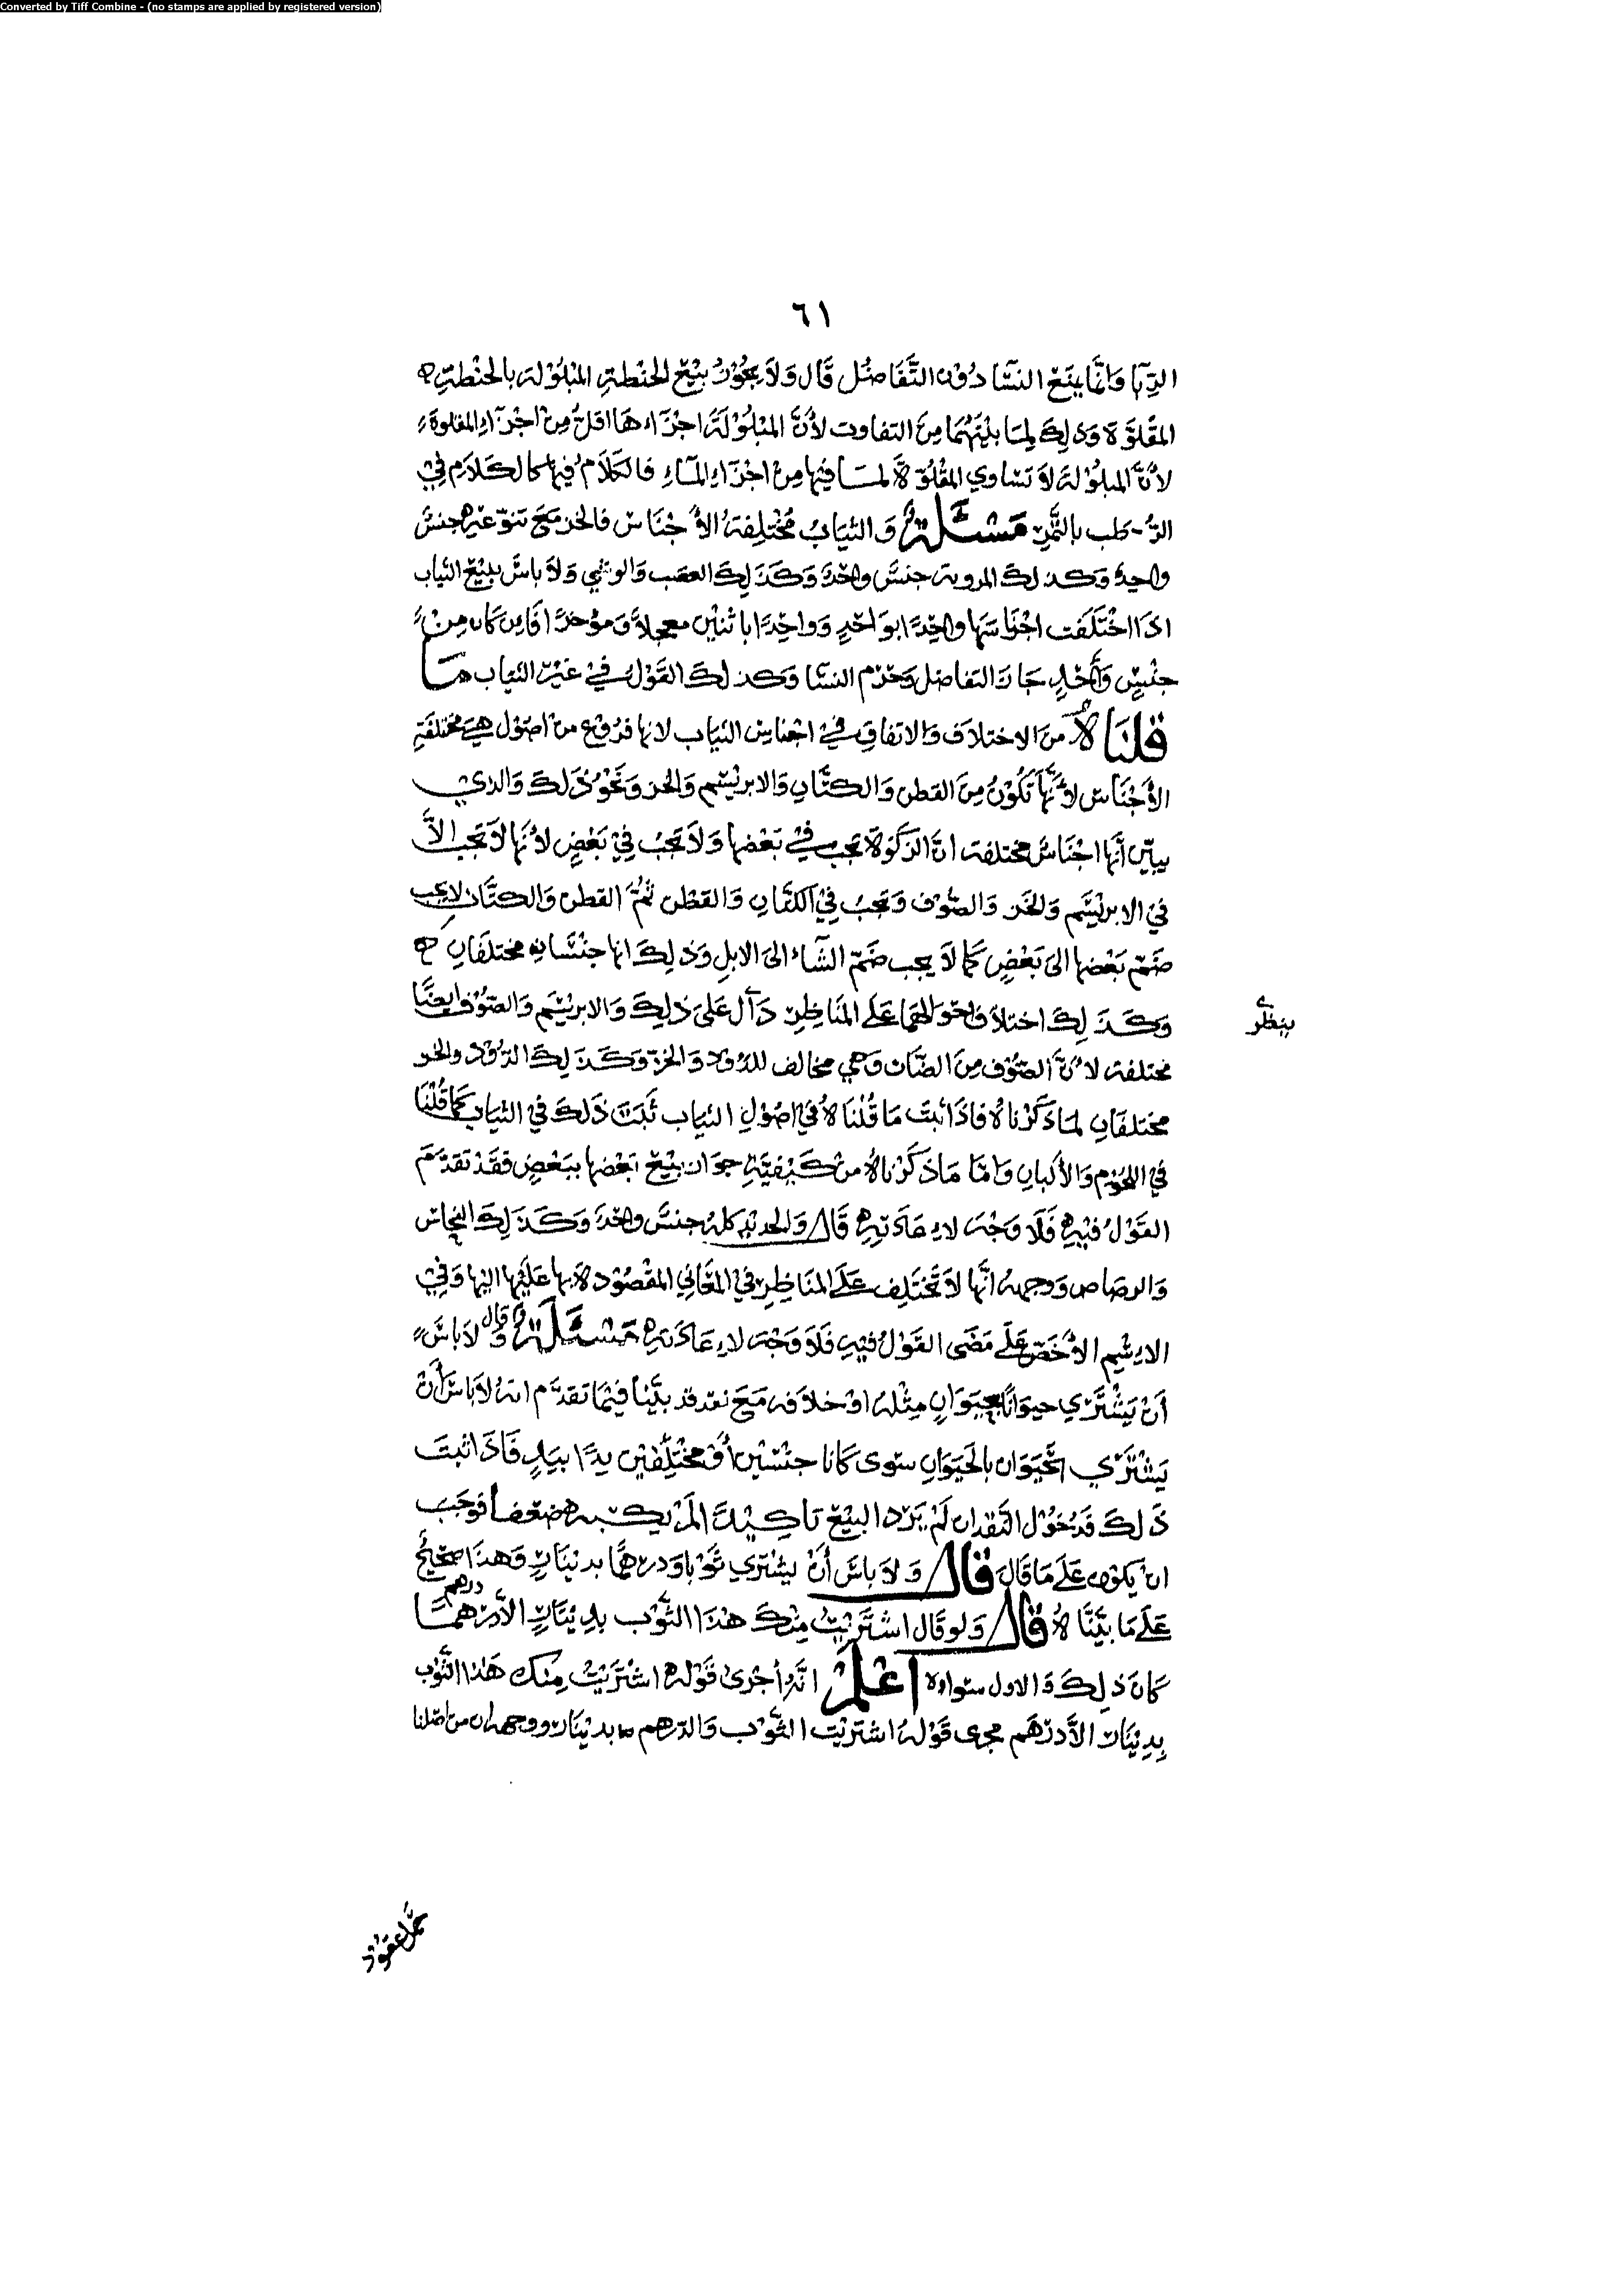 Converted by Tiff Combine - (no stamps are applied by registered version)
٦١
الرِّبا وَانَّما يمنَع النسَآ دُوْن التَّفَاضُل قَال وَلَا يجُوْزُ بَيْعَ الحَنْطةِ المَبْلُوْلة بالحَنْطةِ
المقْلوَّة وَذلِكَ لِمَا بيْنَهُمَا مِنَ التفاوت لأنَّ المَبْلُوْلَةَ اجْزَاءهَا اقلُّ مِنْ اجْزَآءِ المقلوة
لأنَّ المبلوْلة لَا تسَاوي المقْلُوّةَ لمَا فيْهَا مِنْ اجْزَاءِ المآءِ فالكَلَامُ فيْهَا كالكَلَام فِيْ
الرُّطب بالتَّمْرِ مَسْئَلَة وَالثيَابُ مُخْتلِفَةُ الأجْنَاس فالخز مَعَ تنوّعِهِ جنسٌ
واحِدٌ وَكذلكَ المرويةُ جنسٌ واحدٌ وَكَذَلِكَ العصَب وَالوشي وَلَا باسَ ببَيْعِ الثياب
اذَا اخْتَلَفَت اجْنَاسَهَا واحِدًا بوَاحِدٍ وَواحِدًا باثنَيْن معجلاً وَمؤخرًا فَان كَان مِنْ
جنْسٍ وَاحِدٍ جَازَ التفاضل وَحَرُم النسَآ وَكذلكَ القَوْلُ فِيْ غَيْر الثياب مَا
قُلنَاهُ مِنَ الاختلاف وَالاتفاق فِيْ اجْناس الثياب لانها فرُوْع مِن اصُوْل هِيَ مختلفَةِ
الأجْنَاس لأنَّهَا تَكُوْنُ مِنَ القطن وَالكتَّان وَالابريْسَم وَالخز وَنحْوُ ذَلكَ وَالذي
يبيّن أنها اجْنَاسٌ مختلفة انَّ الزكَوةَ تجب فِيْ بَعْضهَا وَلَا تجبُ فِيْ بَعْضٍ لأنَّهَا لَا تجَب الاَّ
فِيْ الابريْسَم وَالخز وَالصُّوْف وَتجبُ فِيْ الكتَّان وَالقطْن ثُمَّ القطن وَالكتَّان لا يجب
ضَمّ بَعْضهَا الىَ بَعْضٍ كَمَا لَا يجب ضَمّ الشَّاء الىَ الابلِ وَذلِكَ انها جنْسَان مختلفَانِ
وَكَذَلِكَ اختلاف احْوَالهما عَلَى المنَاظِر دَالّ عَلىَ ذلِكَ وَالابريْسَم وَالصُّوْف ايضًا
بنظر
مختلفة لأنَّ الصُّوْف مِنَ الضَّان وَهي مخالف للدُوْد وَالخز وَكَذَلكَ الدُّوْد والخز
مختلفَانِ لماذكَرْناهُ فاذَا ثبتَ مَا قُلْنَاهُ فِيْ اصُوْلِ الثياب ثَبَتَ ذَلكَ فِي الثياب كمَا قُلْنَا
فِيْ اللحُوْم وَالألبانِ وَامّا مَا ذكَرْناهُ مِنْ كَيْفيَّةِ جوَاز بيْعِ بَعْضِهَا ببَعْضٍ فقَدْ تقدَّمَ
القَوْلُ فيْهِ فَلَا وَجْهَ لاعَادَتِهِ قَالَ وَالحديد كلهُ جنسٌ واحدٌ وَكَذَلكَ النحاس
وَالرصاص وَوجههُ انَّها لَا تختَلِف عَلَى المنَاظِر فِيْ المعَانِي المقْصُوْدَة بها عَليْهَا اليْهَا وَفِيْ
الاسْم الأخَصّ عَلَى مَضَى القَوْلُ فيْهِ فَلَا وَجْهَ لاعَادَتِهِ مَسْئَلَة وَقال لَا باسَ
أنْ يَشْتَري حيوَانًا بحيَوَانٍ مِثْلهُ اوْ خلافه مَعَ نقد قد بيَّنا فيْمَا تقدَّم انهُ لَا باسَ أنْ
يَشْتَري الحَيوَان بالحَيَوَانِ سوى كَانا جنْسَيْنِ أوْ مختَلِفَيْن يدًا بيَدٍ فَاذَا ثبتَ
ذَلكَ فَدُخُوْل النقدان لَمْ يَزد البيْعَ تاكِيْدًا لَمْ يكسبه ضعفًا فوَجَب
انْ يكوْن عَلَى مَا قَالَ قَالَ وَلَا باسَ أنْ يشتَري ثوْبا وَدرهمًا بدينَارٍ وَهذَا صحِيْحٌ
عَلَى مَا بَيَّنَّاهُ قَالَ وَلو قَال اشتَرَيْتُ مِنكَ هذَا الثَّوْب بدِيْنَارٍ الاَّدِرْهَمًا درهم
كَانَ ذلِكَ وَالاول سَوَاء اعْلَمْ انَّهُ أجْرىَ قَوْلهُ اشْتَرَيْتُ مِنكَ هَذَا الثَّوْب
بِدِيْنَار الاَّ درْهَم مجرى قَوْلهُ اشتريْت الثَّوْب وَالدرهم بديْنَارٍ ووجههُ ان من اصْلنا